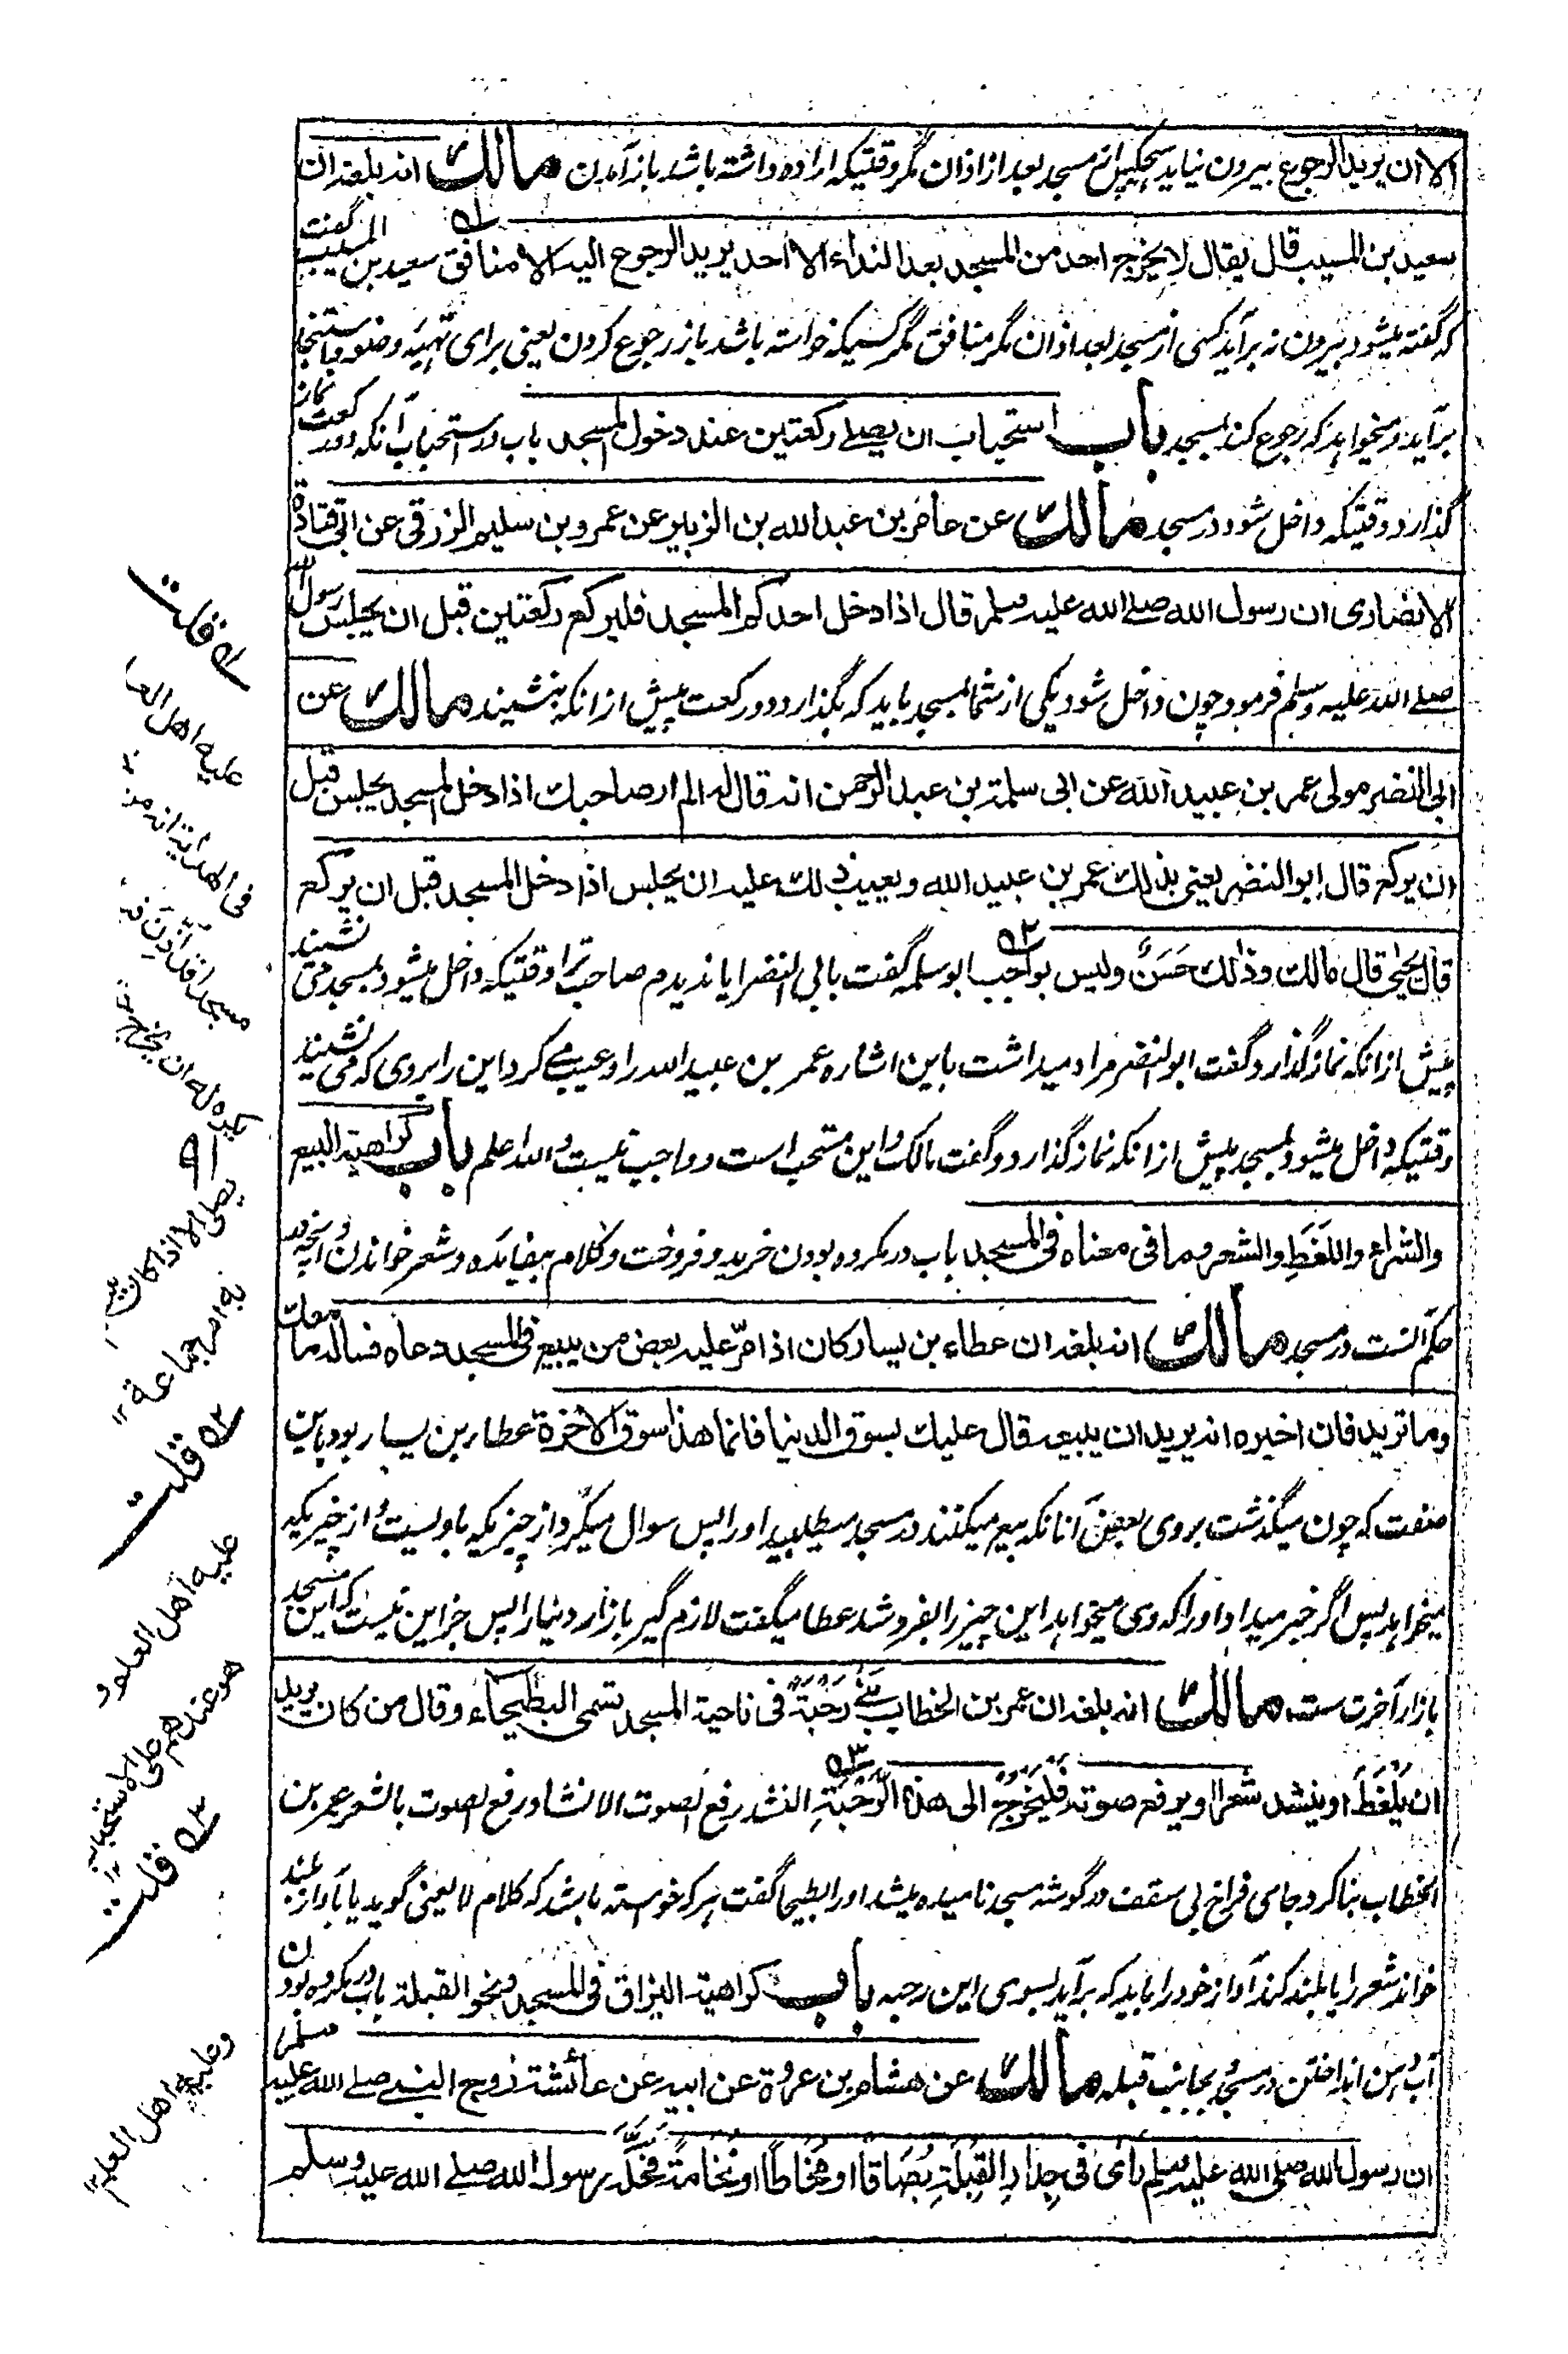 الا ان يريد الرجوع بیرون نیاید هیچکس از مسجد بعد از اذان مگر وقتیکه اراده داشته باشد باز آمدن مالك انه بلغه ان
سعيد بن المسيب قال يقال لا يخرج احد من المسجد بعد النداء الا احد يريد الرجوع اليه الا منافق سعید بن المسیب گفت
که گفته میشود بیرون نه برآید کسی از مسجد بعد اذان مگر منافق مگر کسیکه خواسته باشد باز رجوع کردن یعنی برای تهیه وضو و استنجا
برآید و میخواهد که رجوع کند بمسجد باب استحباب ان يصلے ركعتين عند دخول المسجد باب در استحباب آنکه دو رکعت نماز
گذارد وقتیکه داخل شود در مسجد مالك عن عامر بن عبد الله بن الزبير عن عمرو بن سليم الزرقي عن ابي قتادة
الانصاري ان رسول الله صلے الله عليه وسلم قال اذا دخل احدكم المسجد فليركع ركعتين قبل ان يجلس رسول الله
صلے الله علیه وسلم فرمود چون داخل شود یکی از شما بمسجد باید که بگذارد دو رکعت پیش از انکه بنشیند مالك عن
ابي النضر مولى عمر بن عبيد الله عن ابي سلمة بن عبد الرحمن انه قال له الم ار صاحبك اذا دخل المسجد يجلس قبل
ان يركع قال ابو النضر يعني بذلك عمر بن عبيد الله ويعيب ذلك عليه ان يجلس اذا دخل المسجد قبل ان يركع
قال يحيى قال مالك وذلك حَسَنٌ وليس بواجب ابو سلمه گفت بابی النضر ایا ندیدم صاحب ترا وقتیکه داخل میشود بمسجد می نشیند
پیش از انکه نماز گذارد گفت ابو النضر مراد میداشت باین اشاره عمر بن عبید الله را و عیب مے کرد این را بروی که می نشیند
وقتیکه داخل میشود بمسجد پیش از انکه نماز گذارد و گفت مالک و این مستحب است و واجب نیست و الله اعلم باب كراهية البيع
والشراء واللَغَطِ والشعر وما في معناه في المسجد باب در مکروه بودن خرید و فروخت و کلام بیفایده و شعر خواندن و آنچه در
حکم انست در مسجد مالك انه بلغه ان عطاء بن يسار كان اذا مرّ عليه بعض من يبيع في المسجد دعاه فساله ما معك
وما تريد فان اخبره انه يريد ان يبيعه قال عليك بسوق الدنيا فانما هذا سوق الآخرة عطار بن یسار بود باین
صفت که چون میگذشت بروی بعض آنانکه بیع میکنند در مسجد میطلبید او را پس سوال میکرد از چیزیکه با ویست و از چیزیکه
میخواهد پس اگر خبر میداد او را که وی میخواهد این چیز را بفروشد عطا میگفت لازم گیر بازار دنیا را پس جز این نیست که این مسجد
بازار آخرت ست مالك انه بلغه ان عمر بن الخطاب بَنٰى رَحَبَةً في ناحية المسجد تسمى البطيحاء وقال من كان يريد
ان يَلْغَطَ او ينشد شعرا او يرفع صوته فليَخْرُجْ الى هذه الرَّحَبَةِ النشد رفع الصوت الانشاد رفع الصوت بالشعر عمر بن
الخطاب بنا کرد جای فراخ بی سقف در گوشه مسجد نامیده میشد او را بطیحا گفت هر که خواسته باشد که کلام لا یعنی گوید یا بآواز بلند
خواند شعر را یا بلند کند آواز خود را باید که برآید بسوی این رحبه باب كراهية البزاق في المسجد ونحو القبلة باب در مکروه بودن
آب دهن انداختن در مسجد و بجانب قبله مالك عن هشام بن عروة عن ابيه عن عائشة زوج النبي صلے الله عليه وسلم
ان رسول الله صلى الله عليه وسلم رأى في جدار القِبْلَةِ بُصَاقًا او مُخَاطًا او نُخَامَةً فحَكَّه رسول الله صلے الله عليه وسلم
ﻪ١ قلت
عليه اهل العلم
في الهداية انه من
مسجد اقد أُذِّن فيه
يكره له ان يخرج حتى
يصلى الا اذا كان
به امر جماعة ١٢
ﻪ٢ قلت
عليه اهل العلم و
هو عندهم على الاستحباب ١٢
ﻪ٣ قلت
وعليه اهل العلم ١٢